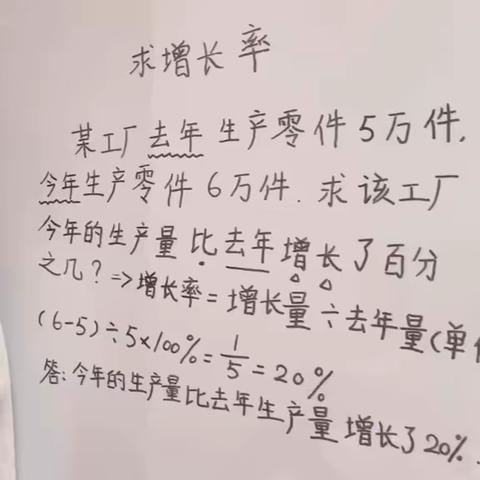 求增长率
某工厂去年生产零件5万件,
今年生产零件6万件.求该工厂
今年的生产量比去年增长了百分
之几?⇒增长率=增长量÷去年量(单
(6-5)÷5×100%=1/5=20%
答:今年的生产量比去年生产量增长了20%.